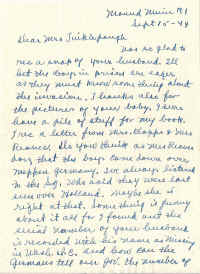 Mound Minn R1
Sept 15-44
Dear Mrs
Was so glad to
rec a snap of your husband. I'll
bet the boys in prison are eager
as they must know something about
the invasion. Thanks also for
the pictures of your baby. I sure
have a pile of stuff for my book.
I rec a letter from Mrs & Mrs
Do you think as Mrs
does that the boys came down over
Germany. I've always listened
to the She said they were last
seen over Holland. Maybe she is
right at that. Something is funny
about it all for I found out the
serial number of your husband
is recorded with his name as missing
in Wash. D.C. and how can the
Germans tell our Gov. the number of